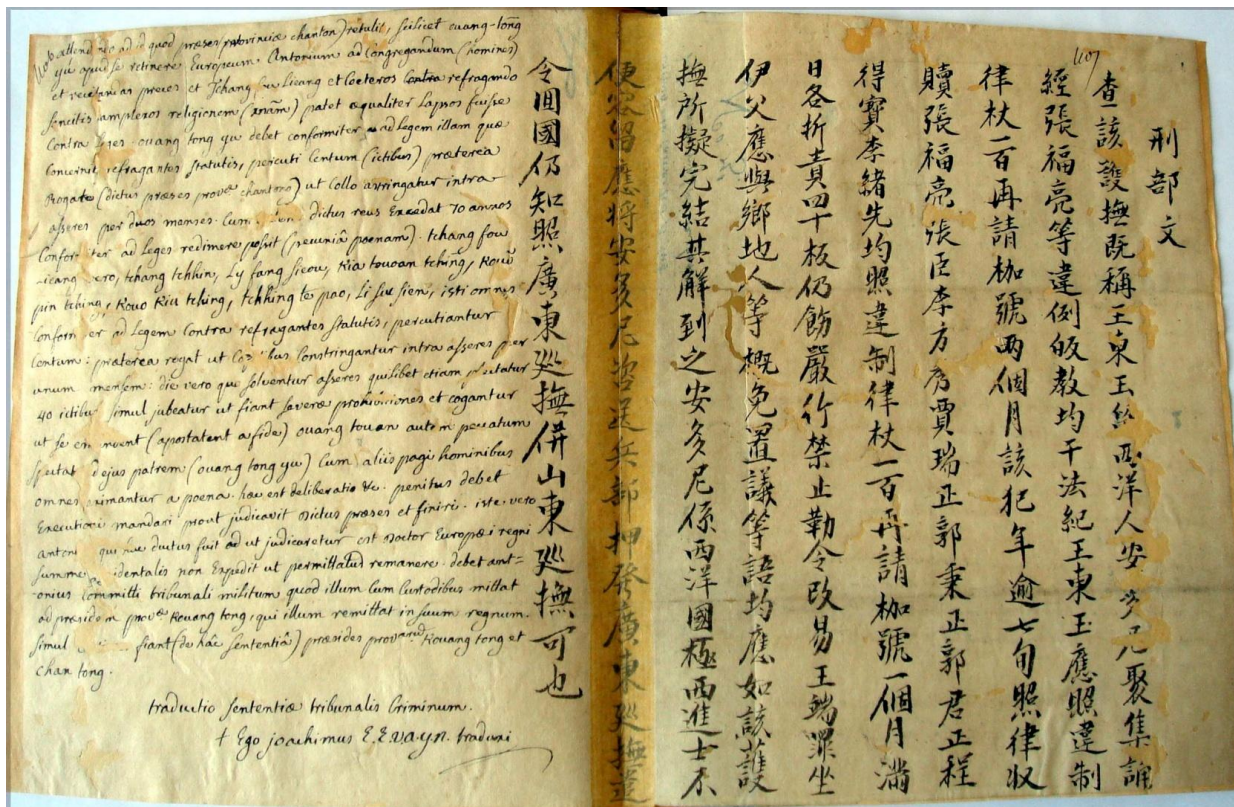 1107
刑部文
查該護撫既稱王東玉 西洋人安多尼聚集誦
經張福亮等違例皈教均干法紀王東玉應照違制
律杖一百再請枷號兩個月該犯年逾七旬照律收
贖張福亮張臣李方秀賈瑞正郭秉正郭君正程
得寶李緒先均照違制律杖一百再請枷號一個月滿
日各折責四十板仍飭嚴行禁止勒令改易王端罪坐
伊父應與鄉地人等概免置議等語均應如該護
撫所擬完結其解到之安多尼係西洋國極西進士不
便容留應將安多尼咨送兵部押發廣東巡撫遣
令囬國仍知照廣東巡撫併山東巡撫可也
1106 attendendo ad id quod præses (provinciæ chanton) retulit, scilicet ouang-tong
yu apud se retinere Europæum Antonium ad congregandum (homines)
et recitandas preces et Tchang fou Lieang et Cœteros Contra refragando
sancitis amplexos religionem patet æqualiter Lapsos fuisse
Contra Leges. ouang tong yu debet conformiter ad legem illam quæ
Concernit refragantes statutis, percuti Centum (ictibus) præterea
Rogat (dictus præses provæ chantong) ut Collo astringatur intra
asseres per duos menses. Cum dictus reus Excedat 70 annos
Conformiter ad Leges redimere possit (pecuniâ pœnam). tchang fou
Lieang vero, tchang tchhin, Ly fang sieou, Kia touoan tching, Kouo
pin tching, Kouo Kiu tching, tchhing te pao, Li siu sien, isti omnes
Conformiter ad Legem Contra refragantes statutis, percutiantur
Centum: præterea rogat ut constringantur intra asseres per
unum mensem: die vero quo solventur asseres quilibet etiam plectatur
40 ictibus simul jubeatur ut fiant severæ prohibitiones et cogantur
ut se emendent (apostatent a fide) ouang touan autem peccatum
spectat ad ejus patrem (ouang tong yu) Cum aliis pagi hominibus
omnes eximantur a pœna. hæc est deliberatio &c. penitus debet
Executioni mandari prout judicavit dictus præses et finiri. iste vero
antonius qui huc ductus fuit ad ut judicaretur est Doctor Europæi regni
summe occidentalis non Expedit ut permittatur remanere. debet ant=
onius Committi tribunali militum quod illum Cum Custodibus mittat
ad præsidem provæ Kouang tong, qui illum remittat in suum regnum.
simul fiant (de hâc sententiâ) præsides provarum Kouang tong et
chan tong.
traductio sententiæ tribunalis Criminum.
+ Ego joachimus E. Evayn. traduxi